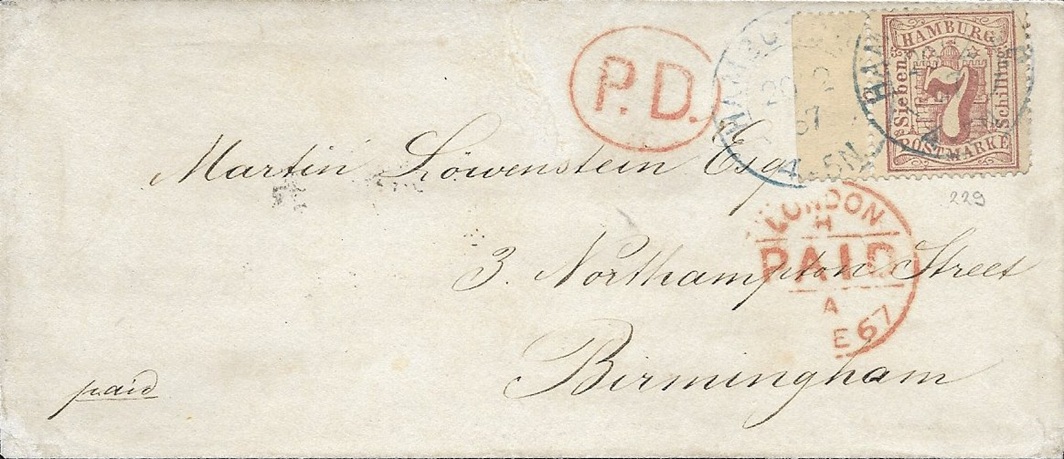 P.D.
HAMBURG
Sieben 7 Schilling
POSTMARKE
HAMB
67
Martin Löwenstein Esq
229
LONDON
H
PAID
A
E 67
3. Northampton Street
Birmingham
paid